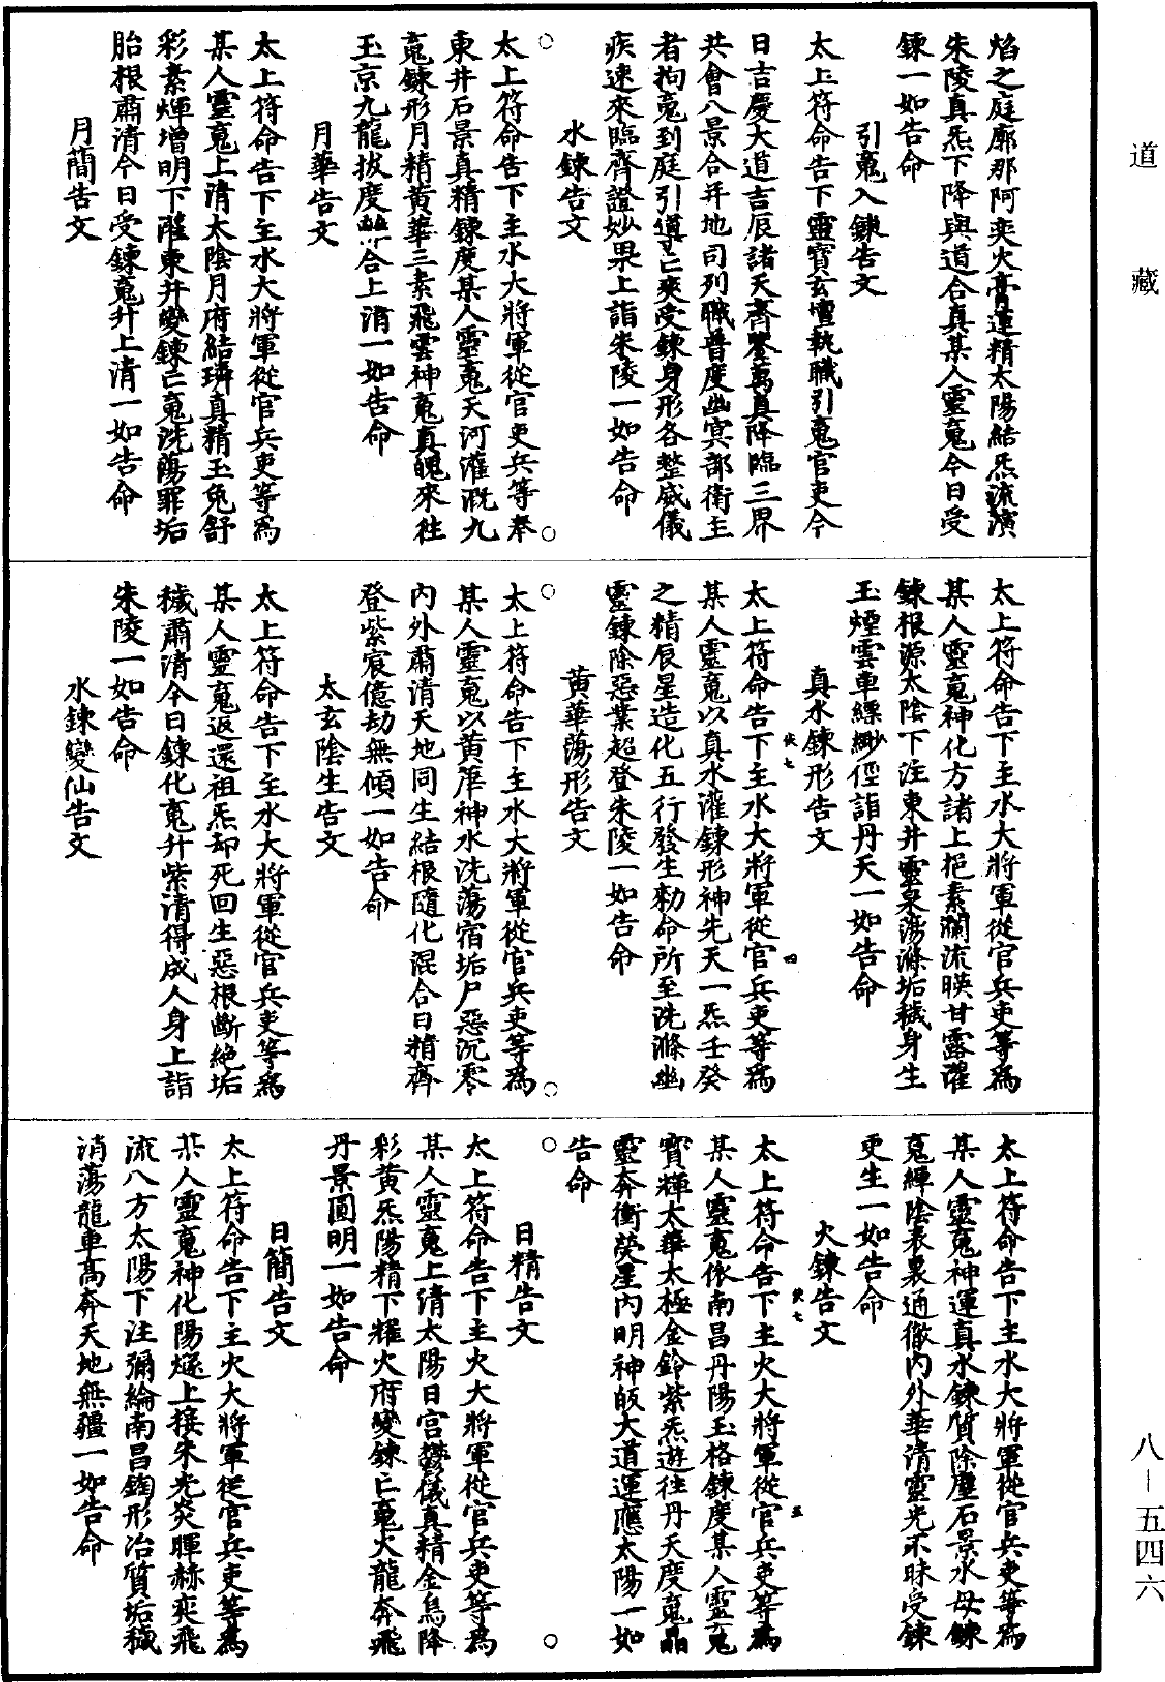 道藏
焰之庭廓那阿奕火膏運精太陽結炁流演
朱陵真炁下降與道合真某人靈䰟今日受
鍊一如告命
引䰟入鍊告文
太上符命告下靈寶玄壇執職引䰟官吏今
日吉慶大道吉辰諸天齊鑒萬真降臨三界
共會八景合并地司列職普度幽冥部衛主
者拘䰟到庭引導亡爽受鍊身形各整威儀
疾速來臨齊證妙果上詣朱陵一如告命
水鍊告文
太上符命告下主水大將軍從官吏兵等奉
東井石景真精鍊度某人靈䰟天河灌溉九
䰟鍊形月精黃華三素飛雲神䰟真魄來往
玉京九龍拔度與合上清一如告命
月華告文
太上符命告下主水大將軍從官兵吏等為
某人靈䰟上清太陰月府結璘真精玉兔舒
彩素煇增明下灌東井變鍊亡䰟洗蕩罪垢
胎根肅清今日受鍊䰟升上清一如告命
月簡告文
太上符命告下主水大將軍從官兵吏等為
某人靈䰟神化方諸上挹素瀾流暎甘露濯
鍊根源太陰下注東井靈泉蕩滌垢穢身生
玉煙雲車縹緲徑詣丹天一如告命
真水鍊形告文
太上符命告下主水大將軍從官兵吏等為
某人靈䰟以真水灌鍊形神先天一炁壬癸
之精辰星造化五行發生勑命所至洗滌幽
靈鍊除惡業超登朱陵一如告命
黃華蕩形告文
太上符命告下主水大將軍從官兵吏等為
某人靈䰟以黃華神水洗蕩宿垢尸惡沉零
內外肅清天地同生結根隨化混合日精齊
登紫宸億劫無傾一如告命
太玄陰生告文
太上符命告下主水大將軍從官兵吏等為
某人靈䰟返還祖炁却死回生惡根斷絕垢
穢肅清今日鍊化䰟升紫清得成人身上詣
朱陵一如告命
水鍊變仙告文
太上符命告下主水大將軍從官兵吏等為
某人靈䰟神運真水鍊質除塵石景水母鍊
䰟煇陰表裏通徹內外華清靈光不昧受鍊
更生一如告命
火鍊告文
太上符命告下主火大將軍從官兵吏等為
某人靈䰟依南昌丹陽玉格鍊度某人靈䰟
寶輝太華太極金鈴紫炁遊往丹天度䰟晶
靈奔衝熒星內明神皈大道運應太陽一如
告命
日精告文
太上符命告下主火大將軍從官兵吏等為
某人靈䰟上清太陽日宮鬱儀真精金烏降
彩黃炁陽精下耀火府變鍊亡䰟火龍奔飛
丹景圓明一如告命
日簡告文
太上符命告下主火大將軍從官兵吏等為
某人靈䰟神化陽燧上接朱光炎暉赫奕飛
流八方太陽下注彌綸南昌鍧形冶質垢穢
消蕩龍車高奔天地無疆一如告命
八－五四六